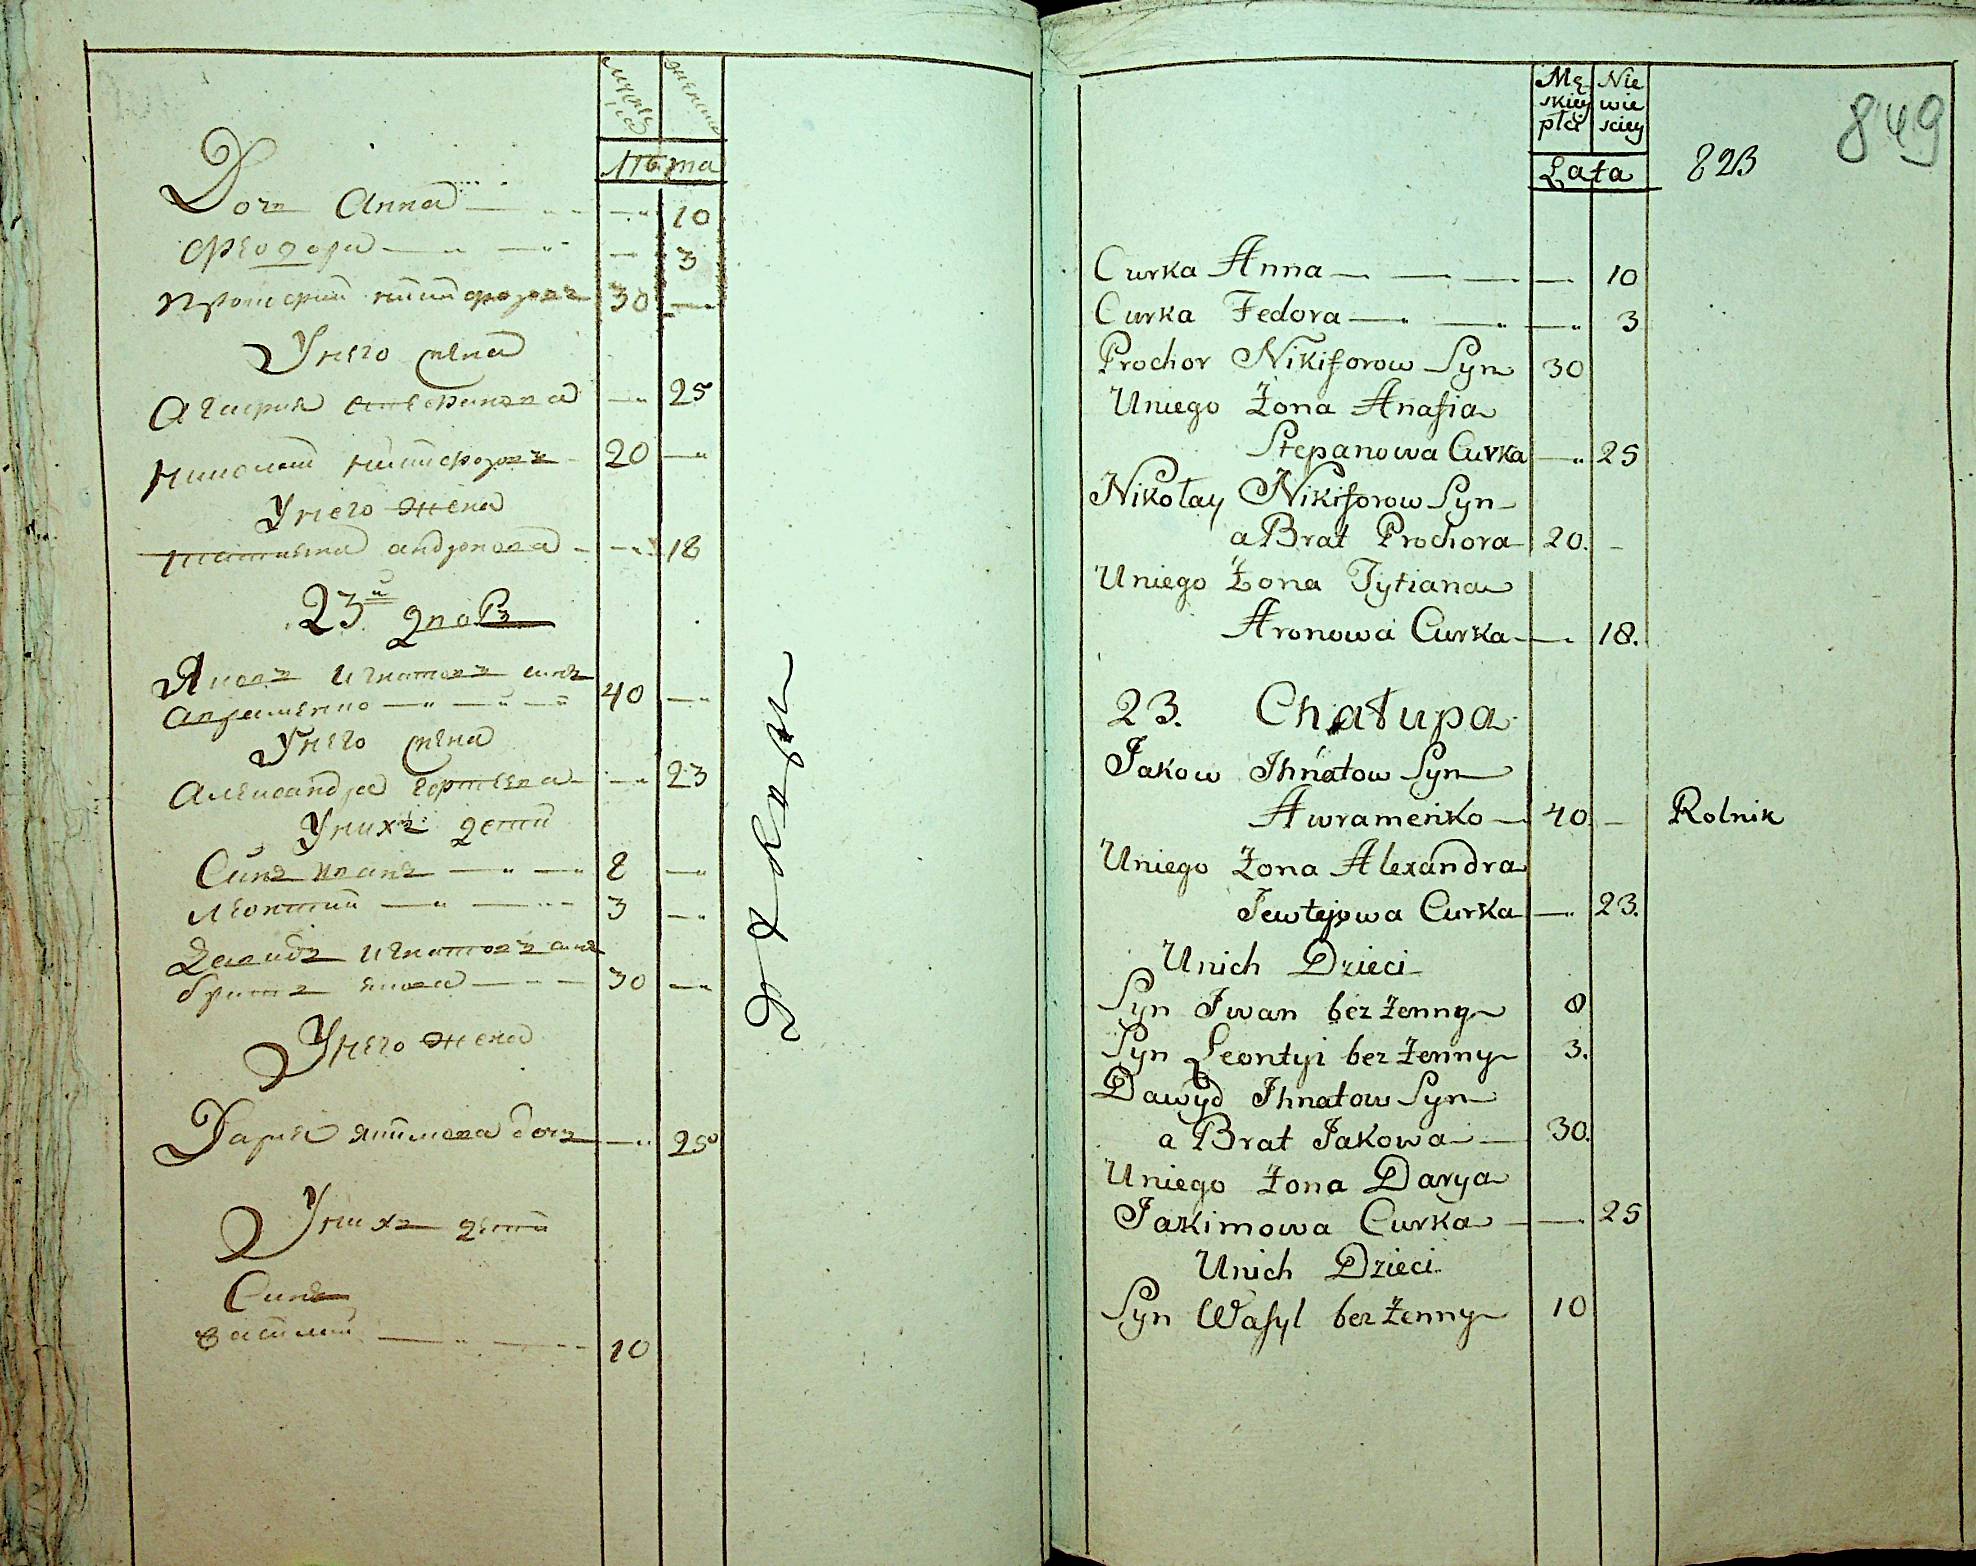 Дочъ Анна — — — 10
Феодора — — — 3
Прокофий Никифоровъ 30 —
У него жена
Агафия Степанова — 25
Николай Никифоровъ 20 —
У него жена
Татияна Андронова — 18
23й дворъ
Яковъ Игнатовъ синъ
Авраменко — — — 40 —
У него жена
Александра Евтеева — 23
У нихъ дети
Синъ Иванъ — — 8 —
Леонтий — — 3 —
Давидъ Игнатовъ синъ
братъ Якова — — 30 —
У него жена
Дария Якимова дочъ — 25
У нихъ дети
Синъ
Василий — — 10
849
Mę Nie
skiey wie
płci sciey
Lata 823
Curka Anna — — — — 10
Curka Fedora — — — 3
Prochor Nikiforow Syn 30
Uniego Żona Anasia
Stepanowa Curka — 25
Nikołay Nikiforow Syn
a Brat Prochora 20. –
Uniego Żona Tytiana
Aronowa Curka — 18.
23. Chałupa
Jakow Ihnatow Syn
Awrameńko — 40. – Rolnik
Uniego Żona Alexandra
Jewtejowa Curka — 23.
Unich Dzieci
Syn Iwan bez Żenny 8
Syn Leontyi bez Żenny 3.
Dawyd Ihnatow Syn
a Brat Jakowa — 30.
Uniego Żona Darya
Jakimowa Curka — 25
Unich Dzieci
Syn Wasyl bez Żenny 10